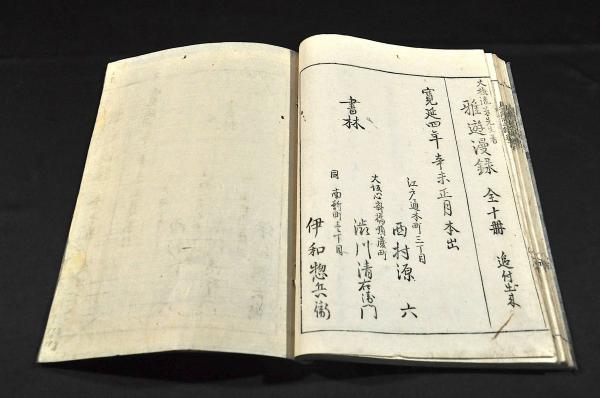 大枝流芳先生著
雅遊漫録 全十冊 追付出来
寛延四年辛未正月本出
江戸通本町三丁目
西村源六
大坂心斎橋順慶町
書林 澁川清右衛門
同南新町三丁目
伊和惣兵衛